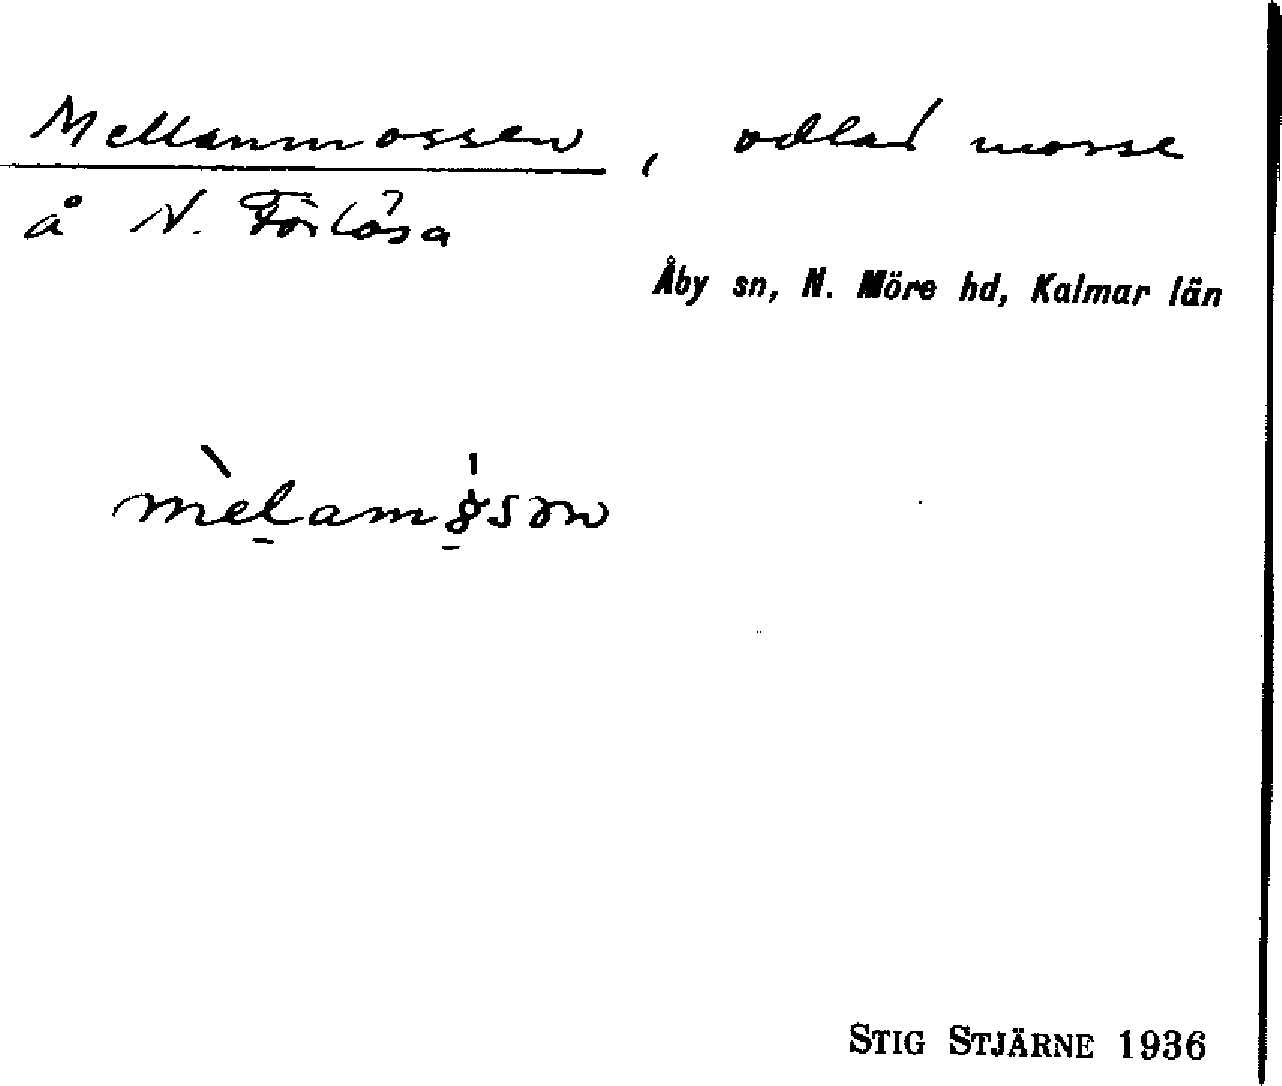 Mellanmossen, odlad mosse
å N. Förlösa
Åby sn, N. Möre hd, Kalmar län
STIG STJÄRNE 1936